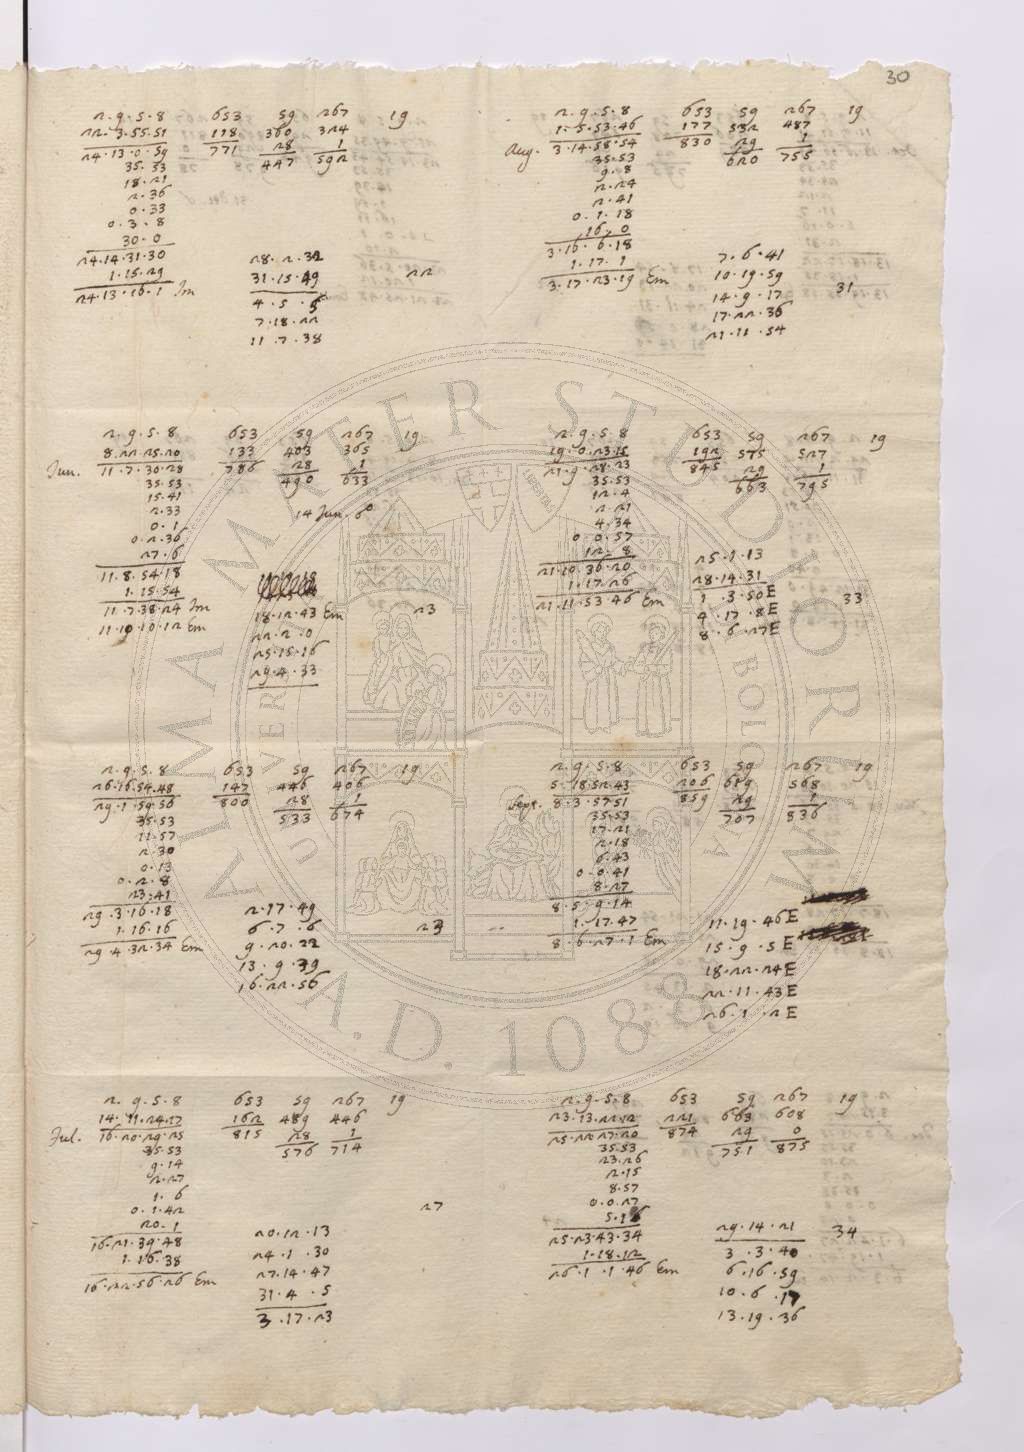 30
2.9.5.8 653 59 267 19
22.3.55.51 118 360 324
24.13.0.59 771 28 1
35.53 447 592
18.21
2.36
0.33
0.3.8
30.0
24.14.31.30 28.2.32
1.15.29 31.15.49 22
24.13.16.1 Im 4.5.5
7.18.22
11.7.38
2.9.5.8 653 59 267 19
Jun. 8.22.25.20 133 403 365
11.7.30.28 786 28 1
35.53 490 633
15.41
2.33 14 Jun. 6°
0.1
0.2.36
27.6
11.8.54.18
1.15.54
11.7.38.24 Im 18.12.43 Em 23
11.10.10.12 Em 22.2.0
25.15.16
29.4.33
2.9.5.8 653 59 267 19
26.16.54.48 147 446 406
29.1.59.56 800 28 1
35.53 533 674
11.57
2.30
0.13
0.2.8
23.41
29.3.16.18 2.17.49
1.16.16 6.7.6 23
29.4.32.34 Em 9.20.22
13.9.39
16.22.56
2.9.5.8 653 59 267 19
Jul. 14.11.24.17 162 489 446
16.20.29.25 815 28 1
35.53 576 714
9.14
2.27
1.6
0.1.42 27
20.1
16.21.39.48 20.12.13
1.16.38 24.1.30
16.22.56.26 Em 27.14.47
31.4.5
3.17.23
2.9.5.8 653 59 267 19
1.5.53.46 177 532 487
Aug. 3.14.58.54 830 29 1
35.53 620 755
9.8
2.24
2.41
0.1.18
16.0
3.16.6.18 7.6.41
1.17.1 10.19.59
3.17.23.19 Em 14.9.17 31
17.22.36
21.11.54
2.9.5.8 653 59 267 19
19.0.23.15 192 575 527
21.9.28.23 845 29 1
35.53 663 795
12.4
2.21
4.34
0.0.57
12.8
21.10.36.20 25.1.13
1.17.26 28.14.31
21.11.53.46 Em 1.3.50 E 33
4.17.8 E
8.6.27 E
2.9.5.8 653 59 267 19
5.18.52.43 206 619 568
Sept. 8.3.57.51 859 29 1
35.53 707 836
17.21
2.18
6.43
0.0.41
8.27
8.5.9.14
1.17.47 11.19.46 E
8.6.27.1 Em 15.9.5 E
18.22.24 E
22.11.43 E
26.1.2 E
2.9.5.8 653 59 267 19
23.13.22.12 221 663 608
25.22.27.20 874 29 0
35.53 751 875
23.26
2.15
8.57
0.0.27
5.16
25.23.43.34 29.14.21 34
1.18.12 3.3.40
26.1.1.46 Em 6.16.59
10.6.17
13.19.36
ALMA MATER STUDIORUM
UNIVERSITAS BOLOGNA
A.D. 1088